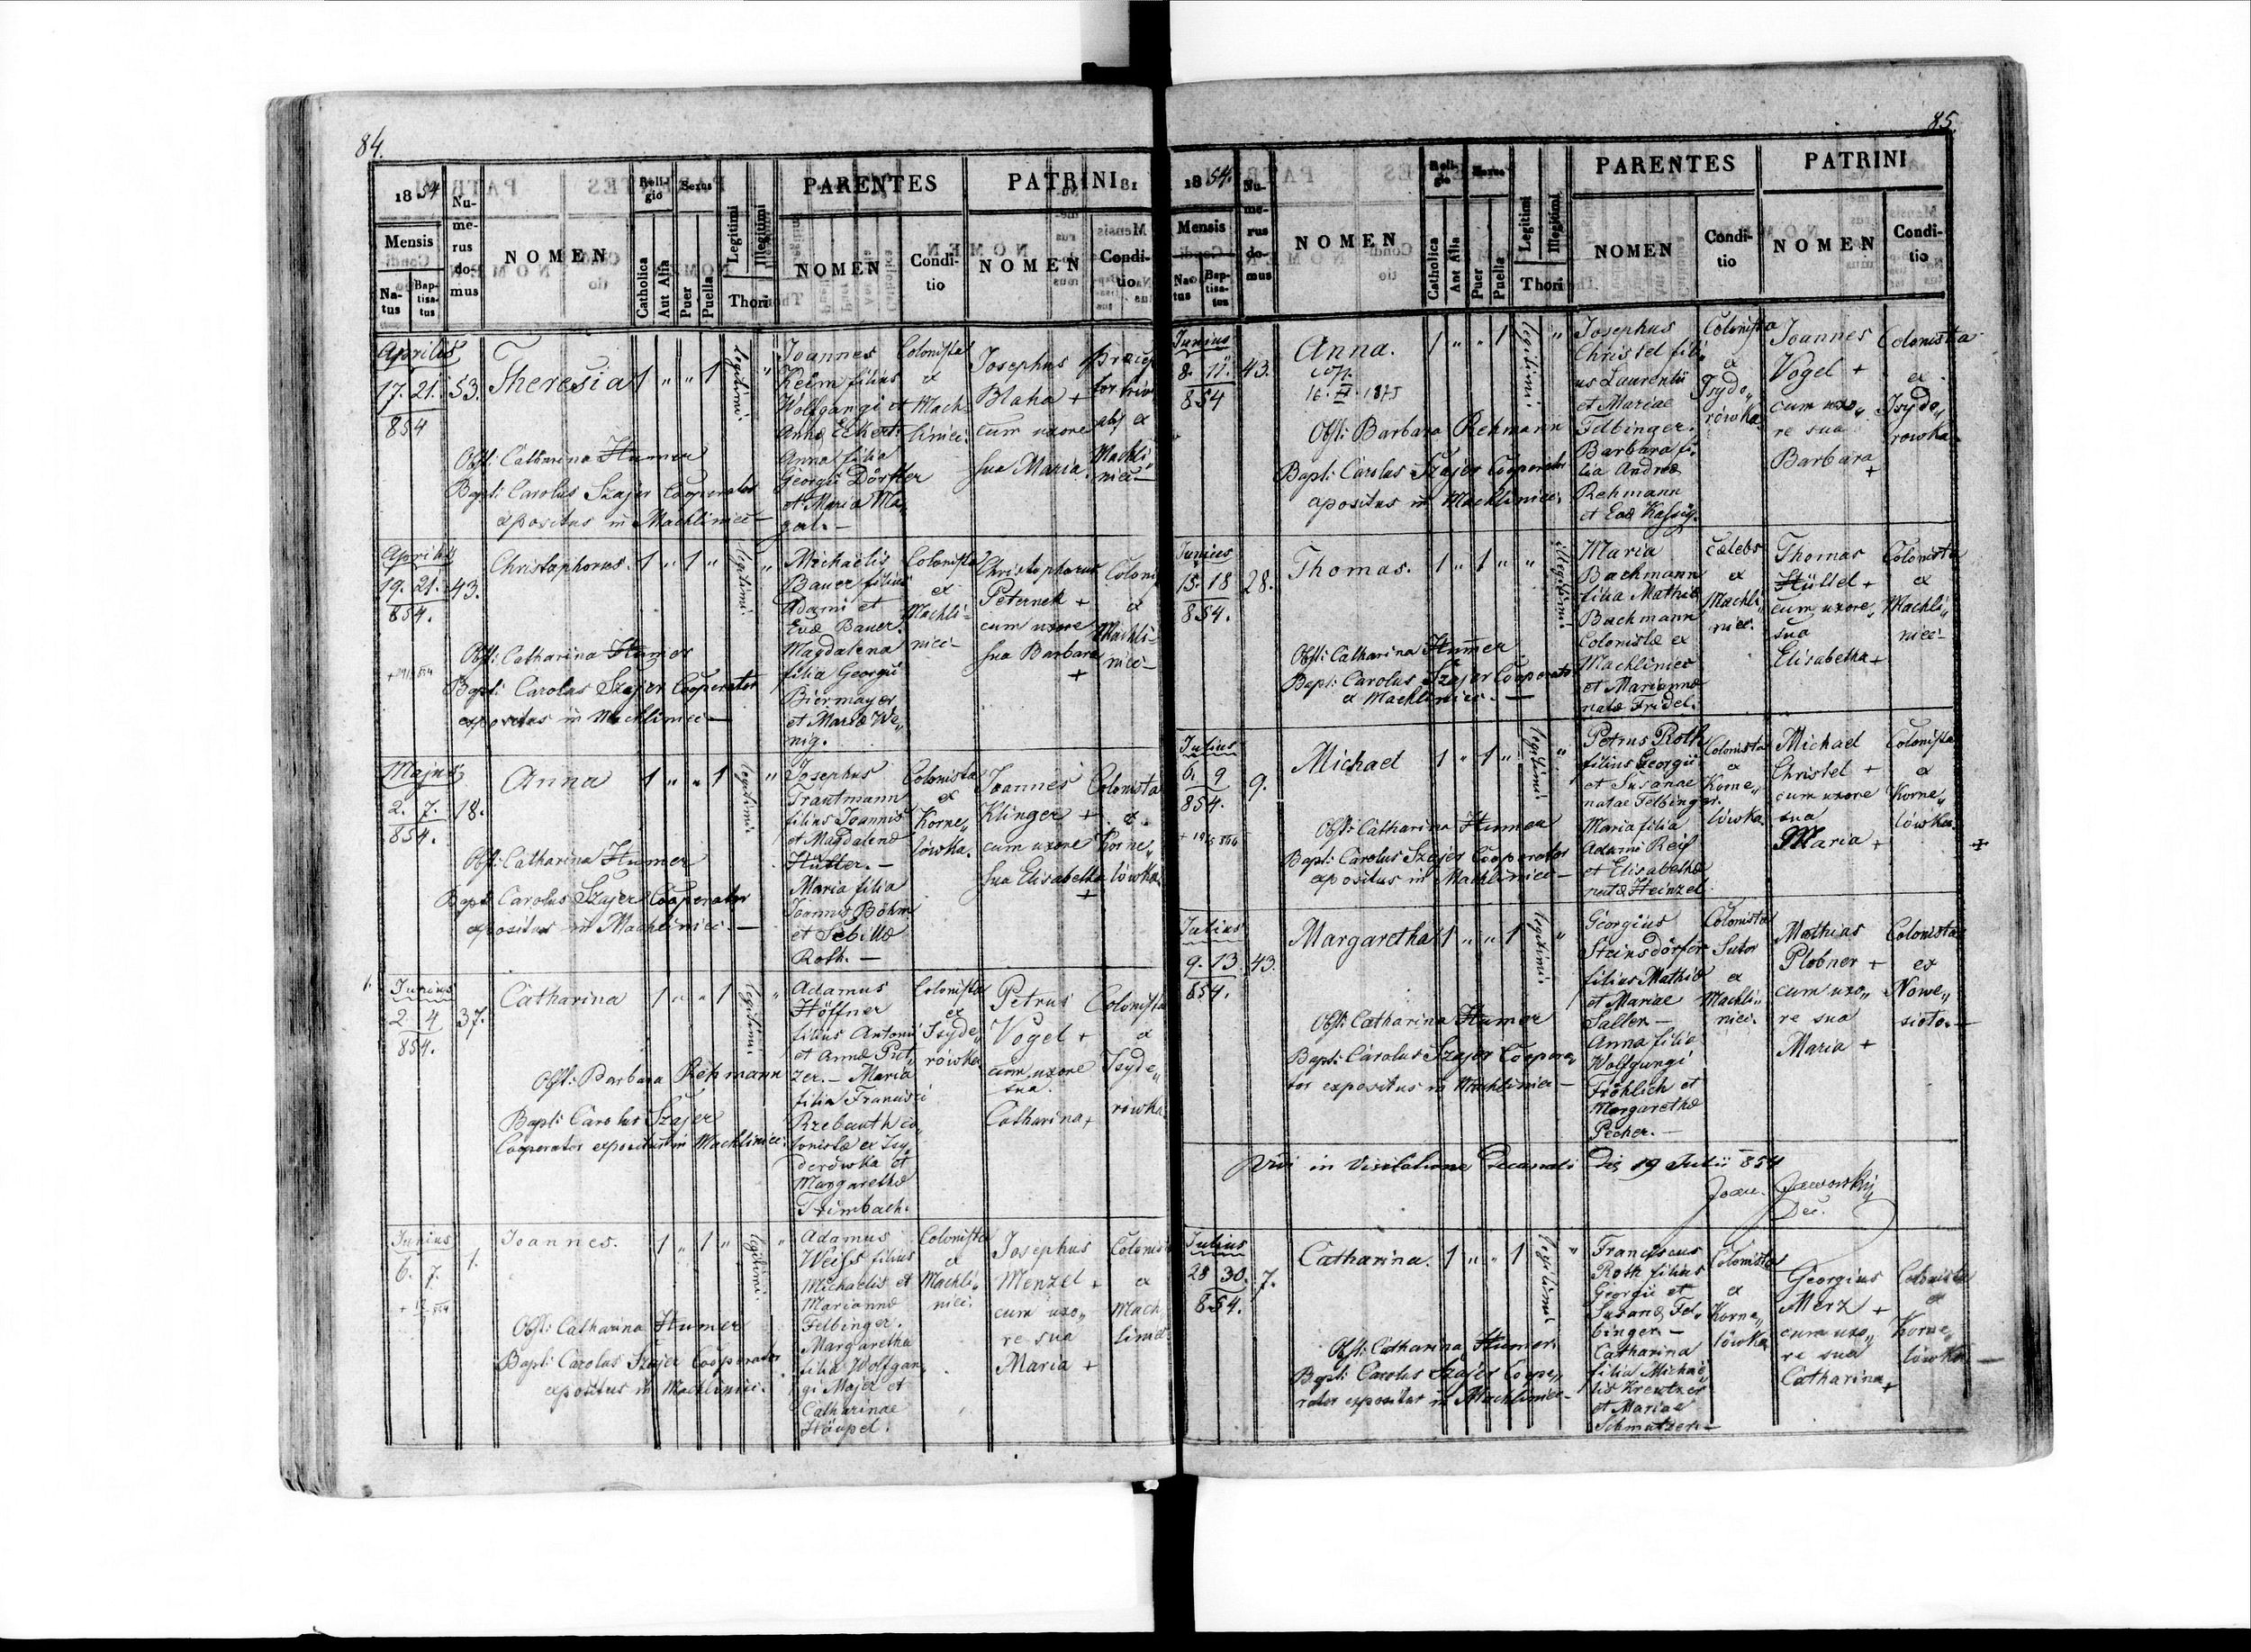 84.
1854
Numerus domus
NOMEN
Religio
Sexus
Legitimi
Illegitimi
PARENTES
PATRINI
Mensis
Natus
Baptisatus
Catholica
Aut Alia
Puer
Puella
Thori
NOMEN
Conditio
NOMEN
Conditio
Aprilis
17. 21. 53. Theresia 1 " " 1 legitimi "
854
Joannes
Keim filius
Wolfgangi et
Anna Eckert.
Anna filia
Georgii Dörfler
et Maria
Colonista
ex
Machlinice.
Josephus
Blaha +
cum uxore
sua Maria.
ex
Machli„
nice—
Obst: Catharina Humer
Bapt: Carolus Szajer Cooperator
expositus in Machlinice—
Aprilis
19. 21. 43. Christophorus. 1 " 1 " legitimi "
854.
Michaelis
Bauer filius
Adami et
Evæ Bauer.
Magdalena
filia Georgii
Biermayer
et Mariæ We„
nig.
Colonista
ex
Machli„
nice—
Christophorus
Peternek +
cum uxore
sua Barbara
+
ex
Machli„
nice—
Obst: Catharina Humer
Bapt: Carolus Szajer Cooperator
expositus in Machlinice—
Majus
2. 7. 18. Anna 1 " " 1 legitimi "
854.
Josephus
Trautmann
filius Joannis
et Magdalenæ
Hütter.—
Maria filia
Joannis Böhm
et Sebillæ
Roth.—
Colonista
ex
Korne„
lówka.
Joannes
Klinger +
cum uxore
sua Elisabetha
+
Colonista
ex
Korne„
lówka.
Obst: Catharina Humer
Bapt: Carolus Szajer Cooperator
expositus in Machlinice.—
Junius
2. 4 37. Catharina 1 " " 1 legitimi "
854.
Adamus
Höffner
filius Antonii
et Annæ Put„
zer.— Maria
filia Francisci
Rzebauth co„
lonistæ ex Isy„
derówka et
Margarethæ
Trimbach.
Colonista
ex
Isyde„
rówka
Petrus
Vogel +
cum uxore
sua.
Catharina +
Colonista
ex
Isyde„
rówka
Obst: Barbara Rehmann
Bapt: Carolus Szajer
Cooperator expositus in Machlinice.
Junius
6. 7. 1. Joannes. 1 " 1 " legitimi. "
Adamus
Weiss filius
Michaelis et
Mariannæ
Felbinger.
Margaretha
filia Wolfgan„
gi Majer et
Catharinae
Häupel.
Colonista
ex
Machli„
nice.
Josephus
Menzel +
cum uxo„
re sua
Maria +
ex
Mach
linice
Obst: Catharina Humer
Bapt: Carolus Szajer Cooperator
expositus in Machlinice.
85.
1854.
Numerus domus
NOMEN
Religio
Sexus
Legitimi
Illegitimi
PARENTES
PATRINI
Mensis
Natus
Baptisatus
Catholica
Aut Alia
Puer
Puella
Thori
NOMEN
Conditio
NOMEN
Conditio
Junius
8. 11. 43. Anna. 1 " " 1 legitimi. "
854
Josephus
Christel fili„
us Laurentii
et Mariae
Felbinger.
Barbara fi„
lia Andreæ
Rehmann
et Evæ
Colonista
ex
Isydo„
rówka.
Joannes
Vogel +
cum uxo„
re sua
Barbara
+
Colonista
ex
Isydo„
rowka.
Obst: Barbara Rehmann
Bapt: Carolus Szajer Cooperator
expositus in Machlinice.
Junius
15. 18 28. Thomas. 1 " 1 " " illegitimi.
854.
Maria
Bachmann
filia Mathiæ
Bachmann
Colonistæ ex
Machlinice
et Mariannæ
natæ Fridel.
Cælebs
ex
Machli„
nice.
Thomas
Hüttel +
cum uxore
sua
Elisabetha +
Colonista
ex
Machli„
nice—
Obst: Catharina Humer
Bapt: Carolus Szajer Cooperator
ex Machlinice.—
Julius
6. 9 9. Michael 1 " 1 " legitimi. "
854.
Petrus Roth
filius Georgii
et Susanae
natae Felbinger.
Maria filia
Adami Reif
et Elisabethæ
natæ Heinzel.
Colonista
ex
Korne„
lówka
Michael
Christel +
cum uxore
sua
Maria +
Colonista
ex
Korne„
lówka.
Obst: Catharina Humer
Bapt: Carolus Szajer Cooperator
expositus in Machlinice—
Julius
9. 13 43. Margaretha 1 " " 1 legitimi. "
854.
Georgius
Steinsdörfer
filius Mathiæ
et Mariae
Saller—
Anna filia
Wolfgangi
Fröhlich et
Margarethæ
Pecher.—
Colonista
Sutor
ex
Machli„
nice.
Mathias
Plobner +
cum uxo„
re sua
Maria +
Colonista
ex
Nowe„
sioto.—
Obst: Catharina Humer
Bapt: Carolus Szajer Coopera„
tor expositus in Machlinice—
Vidi in Visitatione Decanali Die 19 Julii 854
Joan. Jaworskij
Dec.
Julius
28 30. 7. Catharina. 1 " " 1 legitimi "
854.
Franciscus
Roth filius
Georgii et
Susanæ Fel„
binger.—
Catharina
filia Michaë„
lis Kreutzer
et Mariae
Schmatzer.—
Colonista
ex
Korne„
lówka
Georgius
Merz +
cum uxo„
re sua
Catharina +
Colonista
ex
Korne„
lówka—
Obst: Catharina Humer
Bapt: Carolus Szajer Coope„
rator expositus in Machlinice—